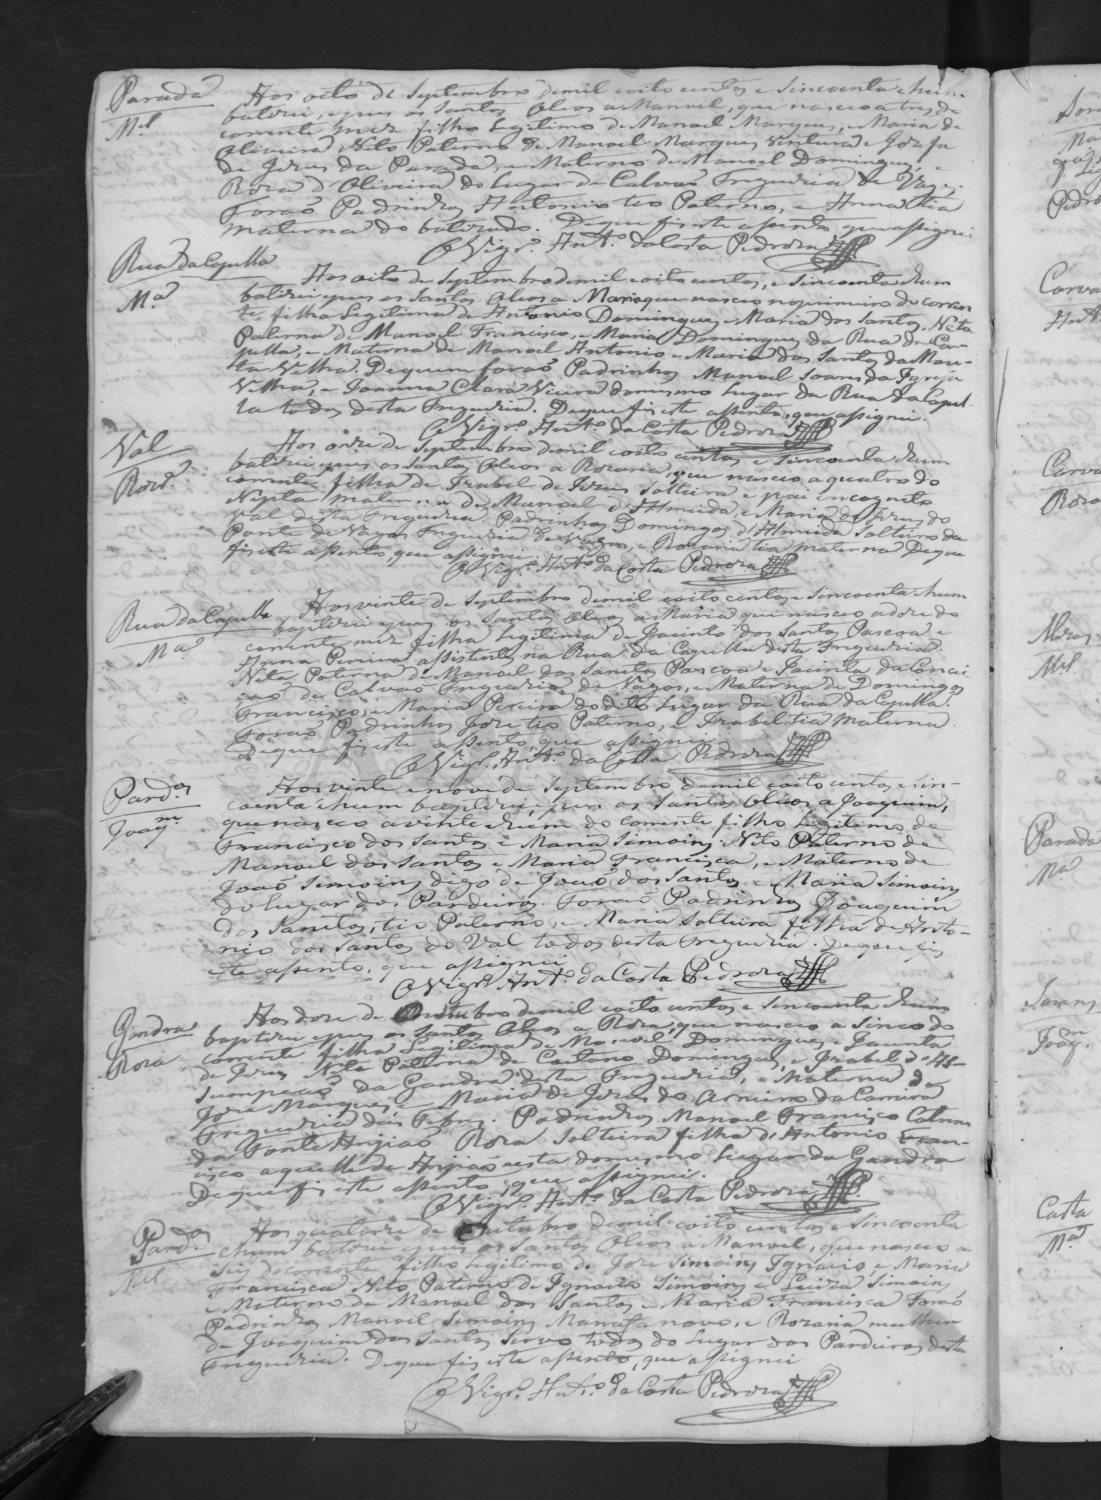 Parada
M.el
Aos oito de Septembro de mil e oito centos e Sincoenta e hum
batizei, e pus os Santos Oleos a Manoel, que nasceo a tres do
corrente mez filho Legitimo de Manoel Marques, e Maria de
Oliveira Nêto Paterno de Manoel Marques Ventura e Josefa
de Jezus da Parada, e Materno de Manoel Domingues, e
Roza d'Oliveira do Lugar de Calvaõ Freguezia de Vagos
Foraõ Padrinhos Antonio tio Paterno, e Anna tia
materna do batizado. De que fis este assento que assignei
O Vigr.o Ant.o da Costa Pedroza
Rua da Capella
M.a
Aos oito de Septembro de mil e oito centos, e Sincoenta e hum
batizei e pus os Santos Oleos a Maria que nasceo no primeiro do corren
te, filha Legitima de Antonio Domingues, e Maria dos Santos, Nêta
Paterna de Manoel Francisco, e Maria Domingues da Rua da Ca-
pella, e Materna de Manoel Antonio, e Maria dos Santos da Mou-
ta Velha. De quem foraõ Padrinhos Manoel Soares da Igreja
Velha, e Joanna Clara Vieira do mesmo Lugar da Rua da Capel-
la todos desta Freguezia. De que fis este assento, que assignei
O Vigr.o Ant.o da Costa Pedroza
Val
Roz.a
Aos onze de Septembro de mil e oito centos e Sincoenta e hum
batizei e pus os Santos Oleos a Rozaria, que nasceo a quatro do
corrente filha de Izabel de Jezus Solteira e pai incognito
Nepta materna de Manoel d'Almeida e Maria de Jezus do
Val desta Freguezia. Padrinhos Domingos d'Almeida Solteiro da
Ponte de Vagos Freguezia de Vagos, e Rozaria tia materna De que
fis este assento que assignei O Vigr.o Ant.o da Costa Pedroza
Rua da Capella
M.a
Aos vinte de Septembro de mil e oito centos e Sincoenta e hum
baptizei e pus os Santos Oleos a Maria que nasceo a doze do
corrente mez filha Legitima de Jacinto dos Santos Pascoa e
Anna Pereira assistentes na Rua da Capella desta Freguezia.
Nêta Paterna de Manoel dos Santos Pascoa e Jacinta da Concei
çaõ de Calvaõ Freguezia de Vagos, e Materna de Domingos
Francisco, e Maria Pereira do dito Lugar da Rua da Capella.
Foraõ Padrinhos Joze tio Paterno, e Izabel tia Materna.
De que fis este assento, que assignei
O Vigr.o Ant.o da Costa Pedroza
Pard.os
Joaq.m
Aos vinte e nove de Septembro de mil e oito centos e sin-
coenta e hum baptizei, e pus os Santos Oleos a Joaquim,
que nasceo a vinte e hum do corrente filho Legitimo de
Francisco dos Santos e Maria Simoins Nêto Paterno de
Manoel dos Santos e Maria Francisca, e Materno de
Joaõ Simoins digo de Joaõ dos Santos e Maria Simoins
do Lugar dos Pardeiros. Foraõ Padrinhos Joaquim
dos Santos, tio Paterno, e Maria Solteira filha de Anto-
nio dos Santos do Val todos desta Freguezia. De que fis
este assento, que assignei
O Vigr.o Ant.o da Costa Pedroza
Gandra
Roza
Aos doze de Outubro de mil e oito centos e Sincoenta e hum
baptizei e pus os Santos Oleos a Roza, que nasceo a Sinco do
corrente filha Legitima de Manoel Domingues e Jacinta
de Jezus Nêta Paterna de Caetano Domingues, e Izabel d'As-
sumpçaõ da Gandra desta Freguezia, e Materna de
Joze Marques e Maria de Jezus do Arneiro da Camera
Freguezia das Febres. Padrinhos Manoel Francisco Catarro
da Fonte Anjiaõ e Roza Solteira filha de Antonio Fran-
cisco aquelle de Anjiaõ e esta do mesmo Lugar da Gandra
De que fis este assento, que assignei
O Vigr.o Ant.o da Costa Pedroza
Pard.os
Mel
Aos quatorze de Outubro de mil e oito centos e Sincoenta
e hum batizei e pus os Santos Oleos a Manoel, que nasceo a
Seis do corrente filho Legitimo de Joze Simoins Ignacio e Maria
Francisca, Nêto Paterno de Ignacio Simoins e Luiza Simoins
e Materno de Manoel dos Santos e Maria Francisca Foraõ
Padrinhos Manoel Simoins novo, e Rozaria mulher
de Joaquim dos Santos Servo todos do Lugar dos Pardeiros desta
Freguezia. De que fis este assento, que assignei
O Vigr.o Ant.o da Costa Pedroza
Parada
M.a
Joaq.m
Costa
M.a